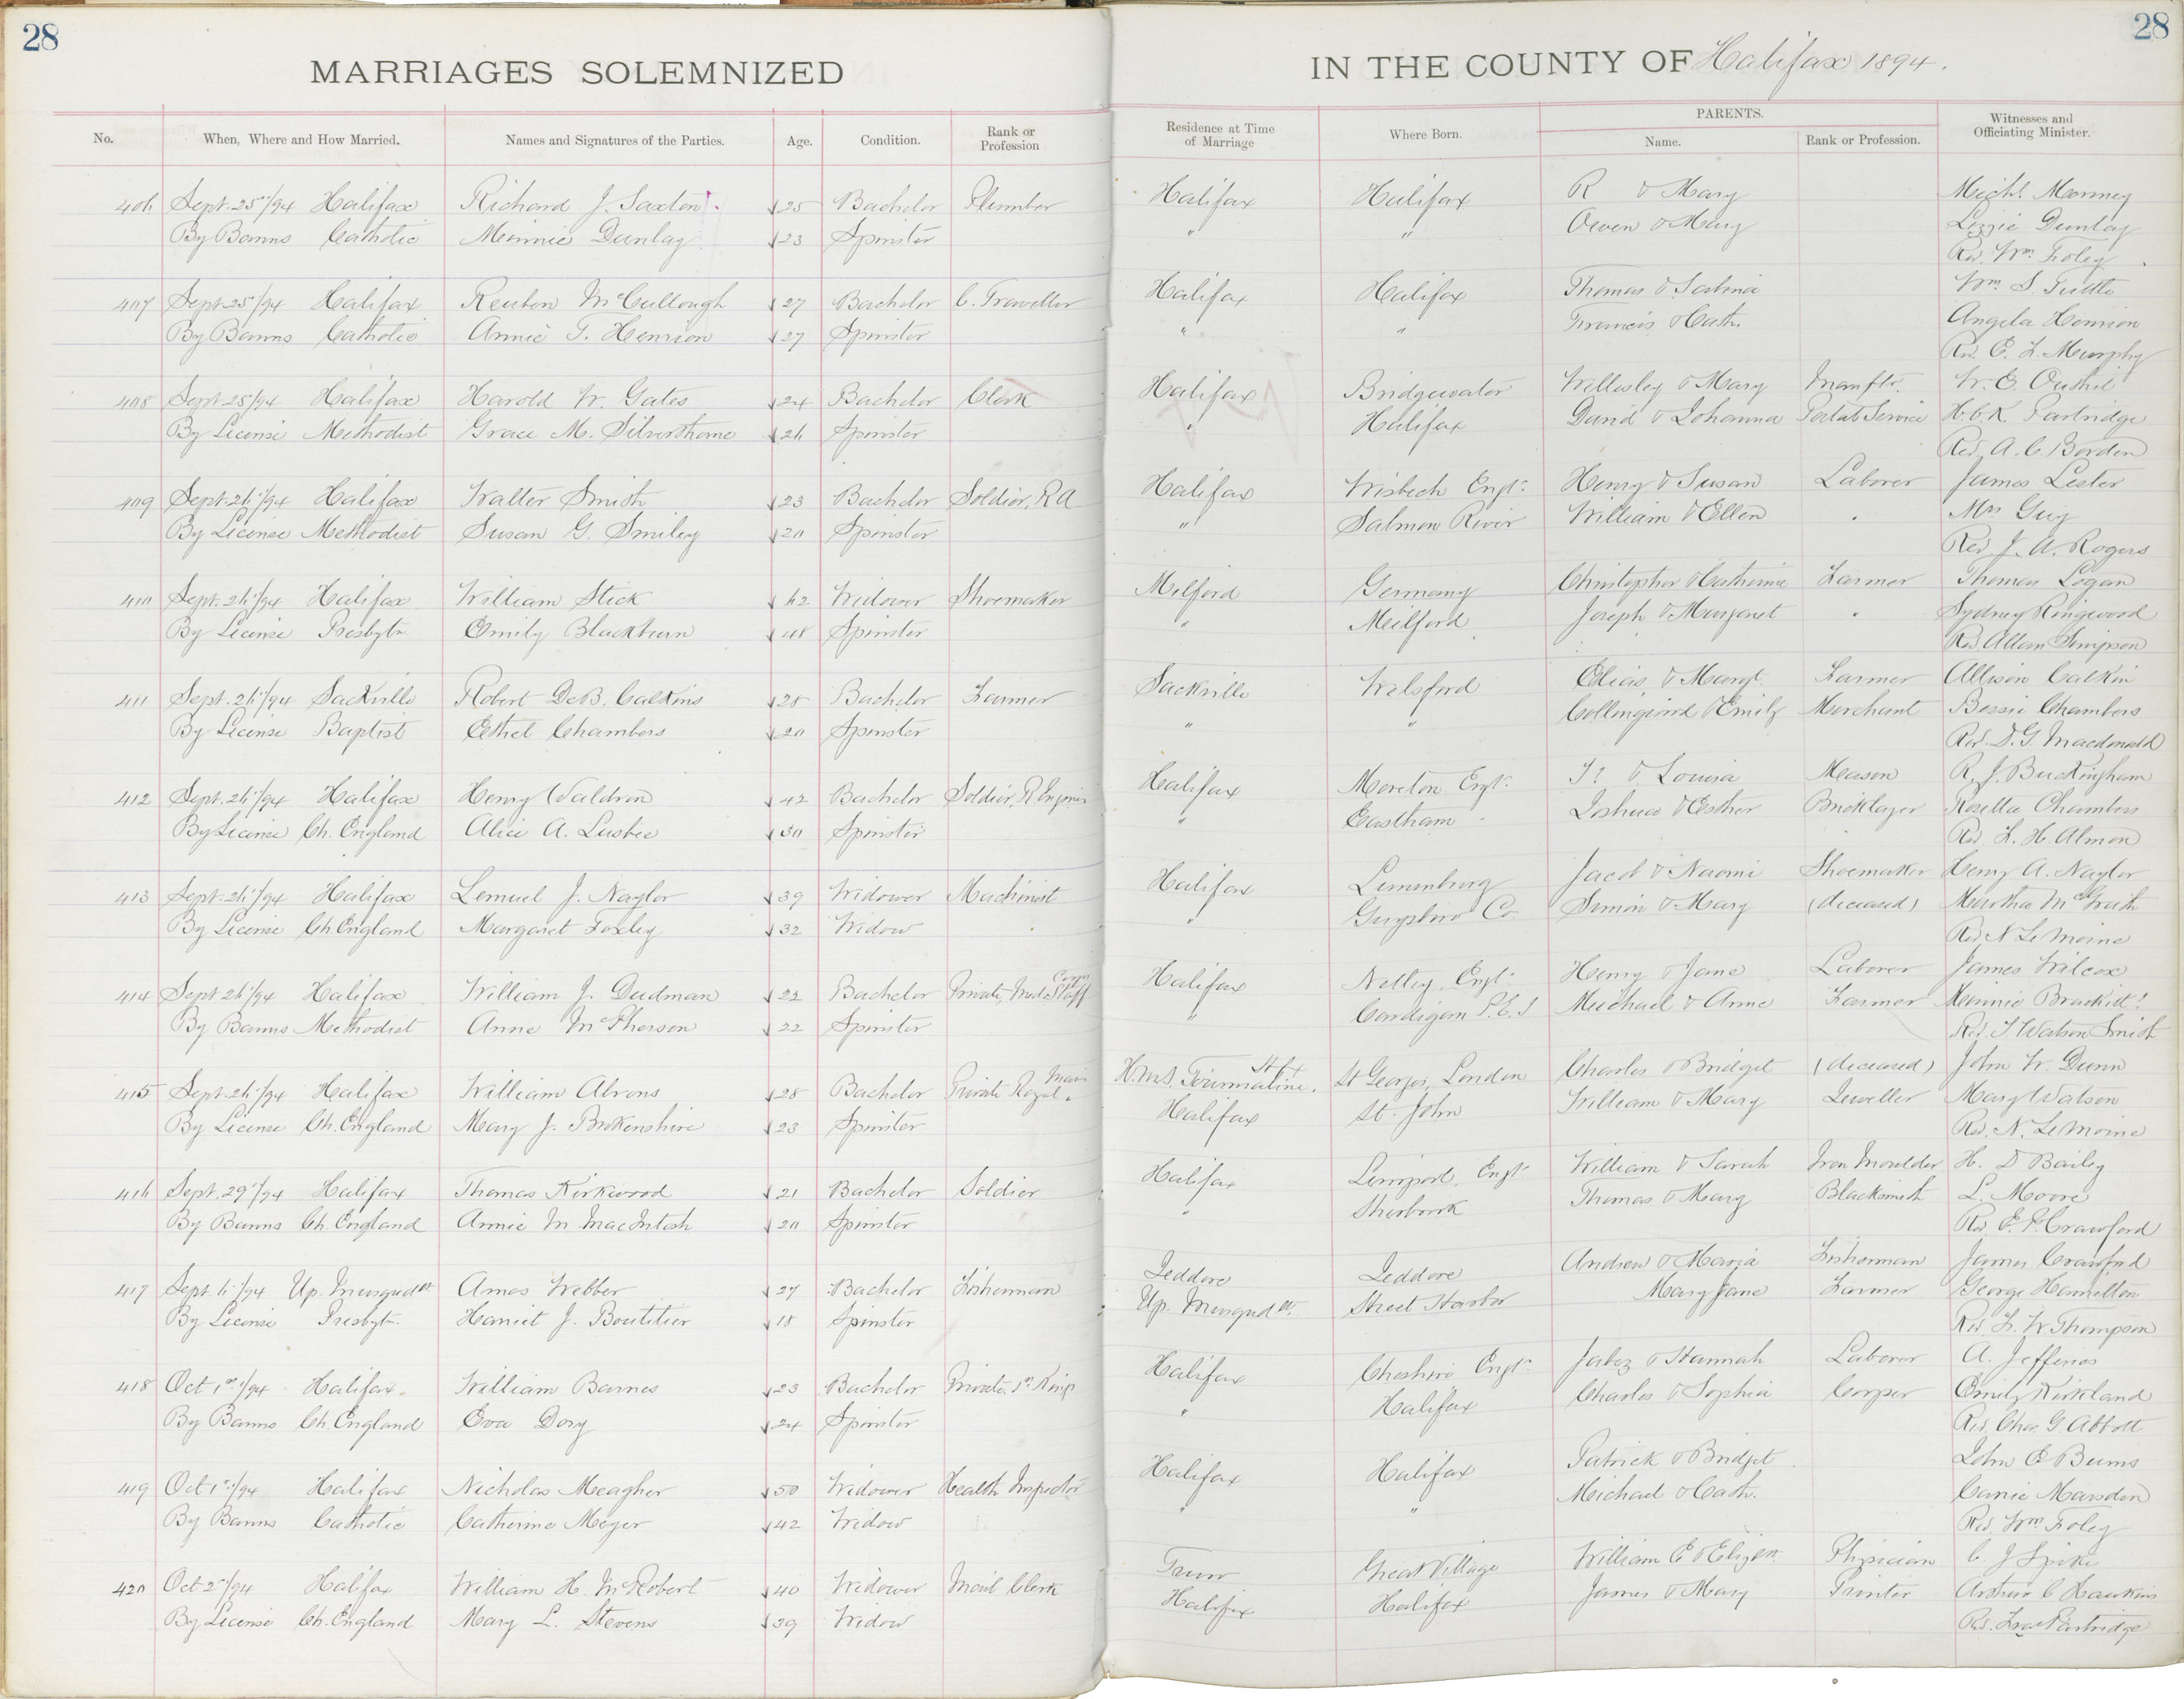 28
28
MARRIAGES SOLEMNIZED IN THE COUNTY OF Halifax 1894.
No. When, Where and How Married. Names and Signatures of the Parties. Age. Condition. Rank or Profession Residence at Time of Marriage Where Born. PARENTS. Name. Rank or Profession. Witnesses and Officiating Minister.
406 Sept. 25"/94 Halifax Richard J. Saxton 25 Bachelor Plumber Halifax Halifax R & Mary Michl. Manney
By Banns Catholic Minnie Dunlay 23 Spinster " " Owen & Mary Lizzie Dunlay
Rev. Wm. Foley
407 Sept. 25"/94 Halifax Reuben McCullough 27 Bachelor C. Traveller Halifax Halifax Thomas & Sabina Wm. S. Tuttle
By Banns Catholic Annie T. Henrion 27 Spinster " " Francis & Cath. Angela Henrion
Rev. E. F. Murphy
408 Sept. 25/94 Halifax Harold W. Gates 24 Bachelor Clerk Halifax Bridgewater Willesley & Mary Manftr. W. E.
By License Methodist Grace M. Silverthorne 26 Spinster " Halifax David & Johanna Postal Service H. C. K. Partridge
Rev. A. C. Borden
409 Sept. 26"/94 Halifax Walter Smith 23 Bachelor Soldier, R A Halifax Wisbech Engt. Henry & Susan Laborer James Lester
By License Methodist Susan G. Smiley 20 Spinster " Salmon River William & Ellen " Mrs Guy
Rev. J. A. Rogers
410 Sept. 26"/94 Halifax William Stick 62 Widower Shoemaker Milford Germany Christopher & Catherine Farmer Thomas Logan
By License Presbytn. Emily Blackburn 48 Spinster " Meilford Joseph & Margaret " Sydney Ringwood
Rev. Allan Simpson
411 Sept. 26"/94 Sackville Robert DeB. Calkins 28 Bachelor Farmer Sackville Welsford Elias & Margt. Farmer Allison Calkin
By License Baptist Ethel Chambers 20 Spinster " " Collingwood & Emily Merchant Bessie Chambers
Rev. D. G. Macdonald
412 Sept. 26"/94 Halifax Henry Waldron 42 Bachelor Soldier, R Engineer Halifax Moreton Engt. & Louisa Mason R. J. Buckingham
By License Ch. England Alice A. Lusbee 30 Spinster " Eastham " Joshua & Esther Bricklayer Rosella Chambers
Rev. F. H. Almon
413 Sept. 26"/94 Halifax Lemuel J. Naylor 39 Widower Machinist Halifax Lunenburg Jacob & Naomi Shoemaker Henry A. Naylor
By License Ch. England Margaret Foxley 32 Widow " Guysboro Co. Simon & Mary (deceased) Martha McGrath
Rev. N LeMoine
414 Sept 26"/94 Halifax William J. Dudman 22 Bachelor Private, Med. Staff Corps Halifax Netley, Engt. Henry & Jane Laborer James Wilcox
By Banns Methodist Anne McPherson 22 Spinster " Cardigan P.E.I Michael & Anne Farmer Minnie Brackitt
Rev. T. Watson Smith
415 Sept. 26"/94 Halifax William Abrons 28 Bachelor Private Royal Marin. H.M.S. Tourmaline. Hfx St Georges, London Charles & Bridget (deceased) John W. Dunn
By License Ch. England Mary J. Brokenshire 23 Spinster Halifax St. John William & Mary Jeweller Mary Watson
Rev. N. LeMoine
416 Sept. 29"/94 Halifax Thomas Kirkwood 21 Bachelor Soldier Halifax Liverpool, Engt. William & Sarah Iron Moulder H. D Bailey
By Banns Ch. England Annie M MacIntosh 20 Spinster " Sherbrook Thomas & Mary Blacksmith L. Moore
Rev. E. P. Crawford
417 Sept. 6"/94 Up. Musqudt. Amos Webber 27 Bachelor Fisherman Jeddore Jeddore Andrew & Maria Fisherman James Crawford
By License Presbytn. Harriet J. Boutilier 18 Spinster Up. Musqudt. Street Harbor Mary Jane Farmer George Hamilton
Rev. F. W. Thompson
418 Oct 1st/94 Halifax William Barnes 23 Bachelor Private, 1st Kings Halifax Cheshire Engt. Jabez & Hannah Laborer A. Jefferies
By Banns Ch. England Eva Dory 24 Spinster " Halifax Charles & Sophia Cooper Emily Kirkland
Rev. Chas. G. Abbott
419 Oct 1st/94 Halifax Nicholas Meagher 50 Widower Health Inspector Halifax Halifax Patrick & Bridget John E Burns
By Banns Catholic Catherine Meyer 42 Widow " " Michael & Cath. Carrie Marsden
Rev. Wm. Foley
420 Oct 2"/94 Halifax William H. McRobert 40 Widower Mail Clerk Truro Great Village William E & Elizth. Physician C. J Spike
By License Ch. England Mary L. Stevens 39 Widow Halifax Halifax James & Mary Printer Arthur C Hawkins
Rev. Fras Partridge